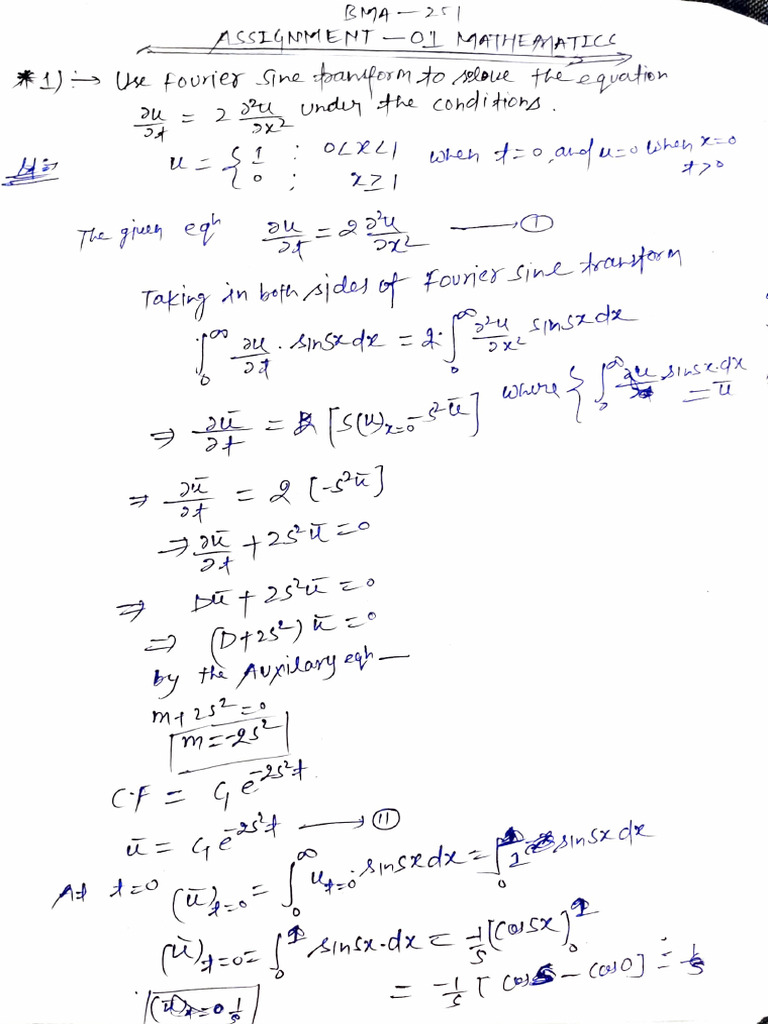 BMA-251
ASSIGNMENT-01 MATHEMATICS
*1):→ Use Fourier Sine transform to solove the equation
∂u/∂t = 2 ∂²u/∂x² under the conditions.
u = { 1 ; 0<x<1 when t=0, and u=0 when x=0
0 ; x≥1 t>0
The given eqn ∂u/∂t = 2 ∂²u/∂x² → (I)
Taking in both sides of Fourier sine transform
∫₀^∞ ∂u/∂t · sinsx dx = 2·∫₀^∞ ∂²u/∂x² sinsx dx
⇒ ∂ū/∂t = 2 [s(u)ₓ₌₀ - s²ū] where { ∫₀^∞ u sinsx·dx = ū
⇒ ∂ū/∂t = 2 [-s²ū]
⇒ ∂ū/∂t + 2s²ū = 0
⇒ Dū + 2s²ū = 0
⇒ (D+2s²) ū = 0
by the Auxilary eqn —
m+2s² = 0
m = -2s²
C.F = C₁e^(-2s²t)
ū = C₁e^(-2s²t) → (II)
At t=0 (ū)ₜ₌₀ = ∫₀^∞ uₜ₌₀ · sinsx dx = ∫₀^1 1 sinsx dx
(ū)ₜ₌₀ = ∫₀^1 sinsx·dx = -1/s [cossx]₀^1
= -1/s [cos s - cos0]